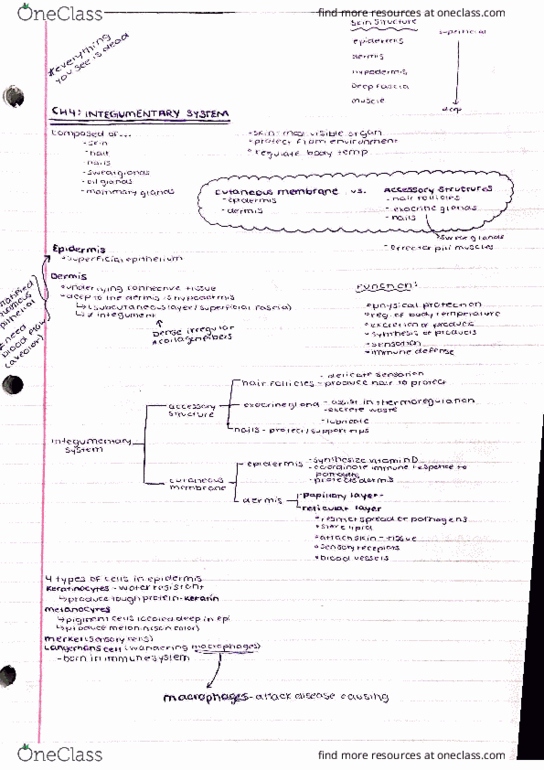 OneClass
find more resources at oneclass.com
Skin Structure
superficial
epidermis
dermis
hypodermis
Deep fascia
muscle
deep
*everything you see is dead
CH4: INTEGUMENTARY SYSTEM
composed of...
- skin
- hair
- nails
- sweat glands
- oil glands
- mammary glands
- skin: most visible organ
* protect from environment
* regulate body temp
cutaneous membrane vs. Accessory Structures
- epidermis
- dermis
- hair follicles
- exocrine glands
- nails
sweat glands
- Errector pili muscles
Epidermis
* superficial epithelium
Dermis
* underlying connective tissue
* deep to the dermis is hypodermis
↳ (subcutaneous layer/superficial fascia)
↳ ≠ integument
Dense irregular
collagen fibers
need blood flow
Function:
* physical protection
* reg. of body temperature
* excretion of products
* synthesis of products
* sensation
* immune defense
integumentary system
accessory structure
hair follicles
- delicate sensation
- produce hair to protect
exocrine gland
- assist in thermoregulation
- excrete waste
- lubricate
nails - protect/support tips
cutaneous membrane
epidermis
- synthesize vitamin D
- coordinate immune response to
- protects dermis
dermis
papillary layer-
reticular layer
* restrict spread of pathogens
* store lipid
* attach skin - tissue
* sensory receptors
* blood vessels
4 types of cells in epidermis
Keratinocytes - water resistant
↳ produce tough protein - keratin
melanocytes
↳ pigment cells located deep in epi
↳ produce melanin (skin color)
merkel (sensory cells)
Langerhans cell (wandering macrophages)
- born in immune system
macrophages - attack disease causing
OneClass
find more resources at oneclass.com